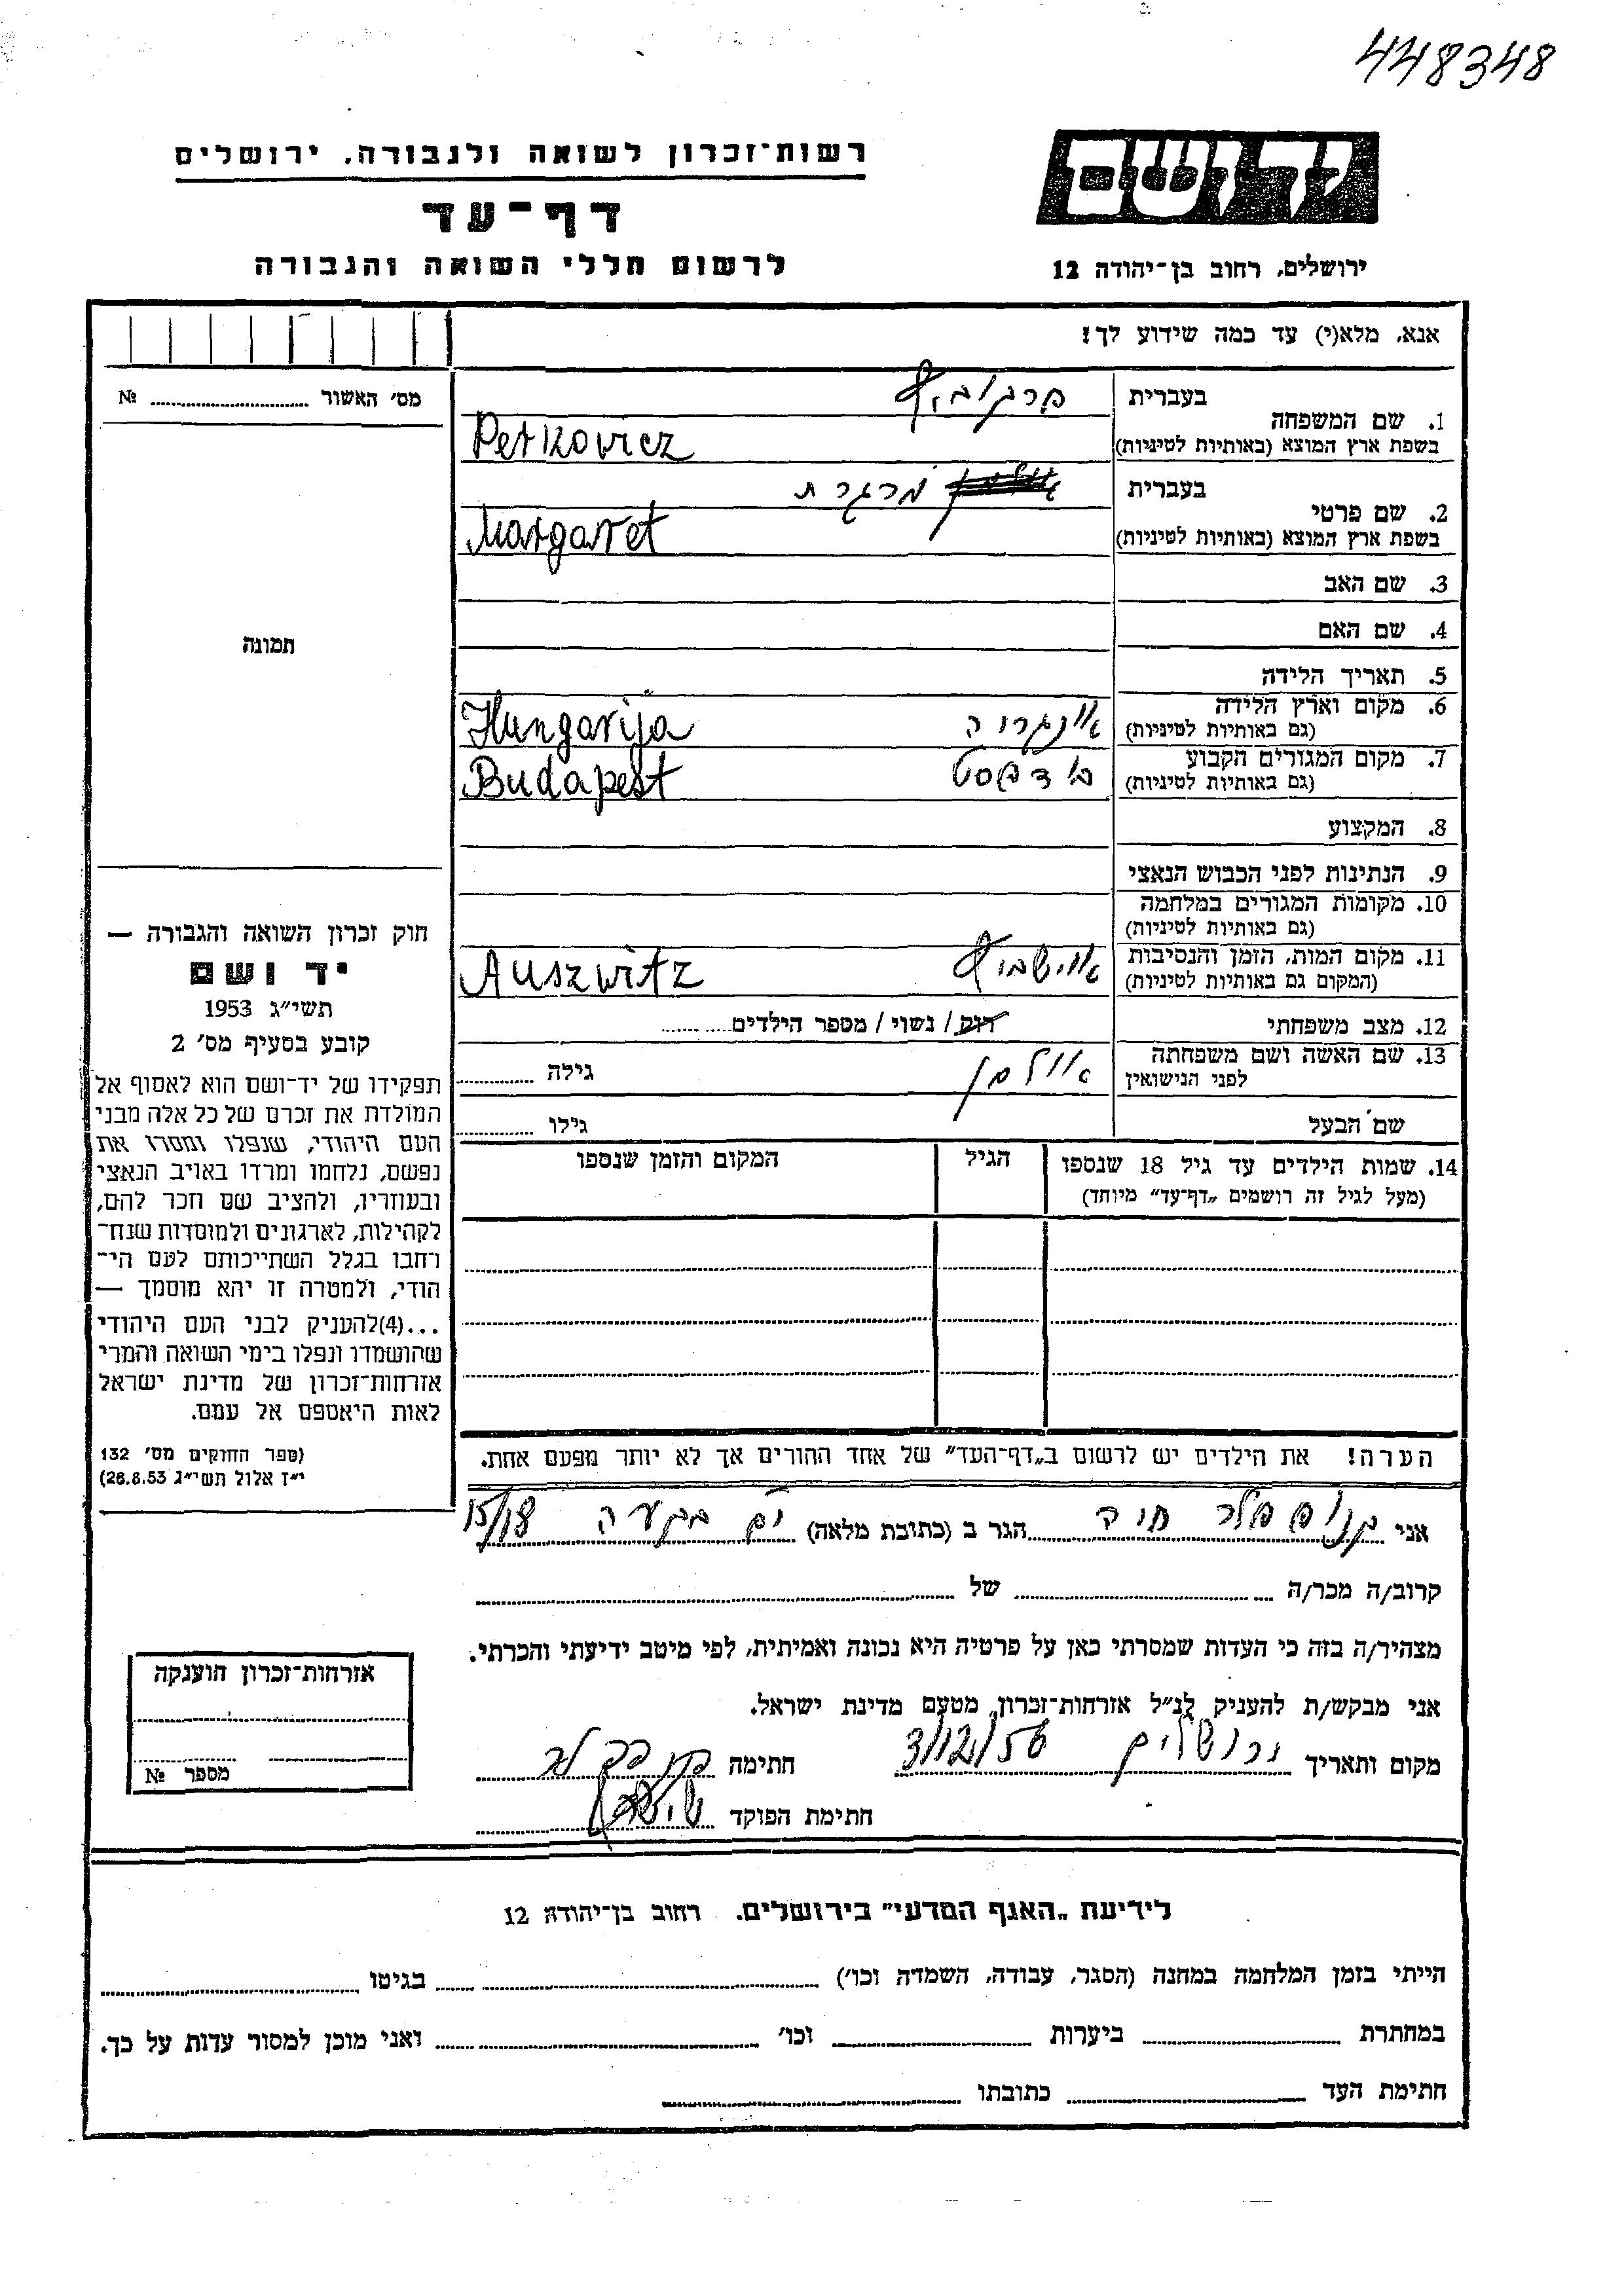 448348
יד ושם
רשות־זכרון לשואה ולגבורה, ירושלים
דף־עד
לרשום חללי השואה והגבורה
ירושלים, רחוב בן־יהודה 12
אנא, מלא(י) עד כמה שידוע לך!
מס׳ האשור ........ №
תמונה
1. שם המשפחה
בעברית
בשפת ארץ המוצא (באותיות לטיניות)
Petkovicz
2. שם פרטי
בעברית מרגרת
בשפת ארץ המוצא (באותיות לטיניות)
Margaret
3. שם האב
4. שם האם
5. תאריך הלידה
6. מקום וארץ הלידה
(גם באותיות לטיניות)
Hungarija
7. מקום המגורים הקבוע
(גם באותיות לטיניות)
בודפסט Budapest
8. המקצוע
9. הנתינות לפני הכבוש הנאצי
10. מקומות המגורים במלחמה
(גם באותיות לטיניות)
11. מקום המות, הזמן והנסיבות
(המקום גם באותיות לטיניות)
אוישביץ Auszwitz
12. מצב משפחתי רוק / נשוי / מספר הילדים........
13. שם האשה ושם משפחתה
לפני הנישואין
אולמן גילה ........
שם הבעל גילו ........
14. שמות הילדים עד גיל 18 שנספו הגיל המקום והזמן שנספו
(מעל לגיל זה רושמים „דף־עד״ מיוחד)
הערה! את הילדים יש לרשום ב„דף־העד״ של אחד ההורים אך לא יותר מפעם אחת.
חוק זכרון השואה והגבורה —
יד ושם
תשי״ג 1953
קובע בסעיף מס׳ 2
תפקידו של יד־ושם הוא לאסוף אל
המולדת את זכרם של כל אלה מבני
העם היהודי, שנפלו ומסרו את
נפשם, נלחמו ומרדו באויב הנאצי
ובעוזריו, ולהציב שם וזכר להם,
לקהילות, לארגונים ולמוסדות שנח־
רבו בגלל השתייכותם לעם הי־
הודי, ולמטרה זו יהא מוסמך —
...(4)להעניק לבני העם היהודי
שהושמדו ונפלו בימי השואה והמרי
אזרחות־זכרון של מדינת ישראל
לאות היאספם אל עמם.
(ספר החוקים מס׳ 132
י״ז אלול תשי״ג 28.8.53)
אני הגר ב (כתובת מלאה) 15/18
קרוב/ה מכר/ה ........ של ........
מצהיר/ה בזה כי העדות שמסרתי כאן על פרטיה היא נכונה ואמיתית, לפי מיטב ידיעתי והכרתי.
אני מבקש/ת להעניק לנ״ל אזרחות־זכרון מטעם מדינת ישראל.
מקום ותאריך ירושלים 3/12/56 חתימה
חתימת הפוקד
אזרחות־זכרון הוענקה
מספר №
לידיעת „האגף המדעי״ בירושלים. רחוב בן־יהודה 12
הייתי בזמן המלחמה במחנה (הסגר, עבודה, השמדה וכו׳) ........ בגיטו ........
במחתרת ........ ביערות ........ וכו׳ ........ ואני מוכן למסור עדות על כך.
חתימת העד ........ כתובתו ........